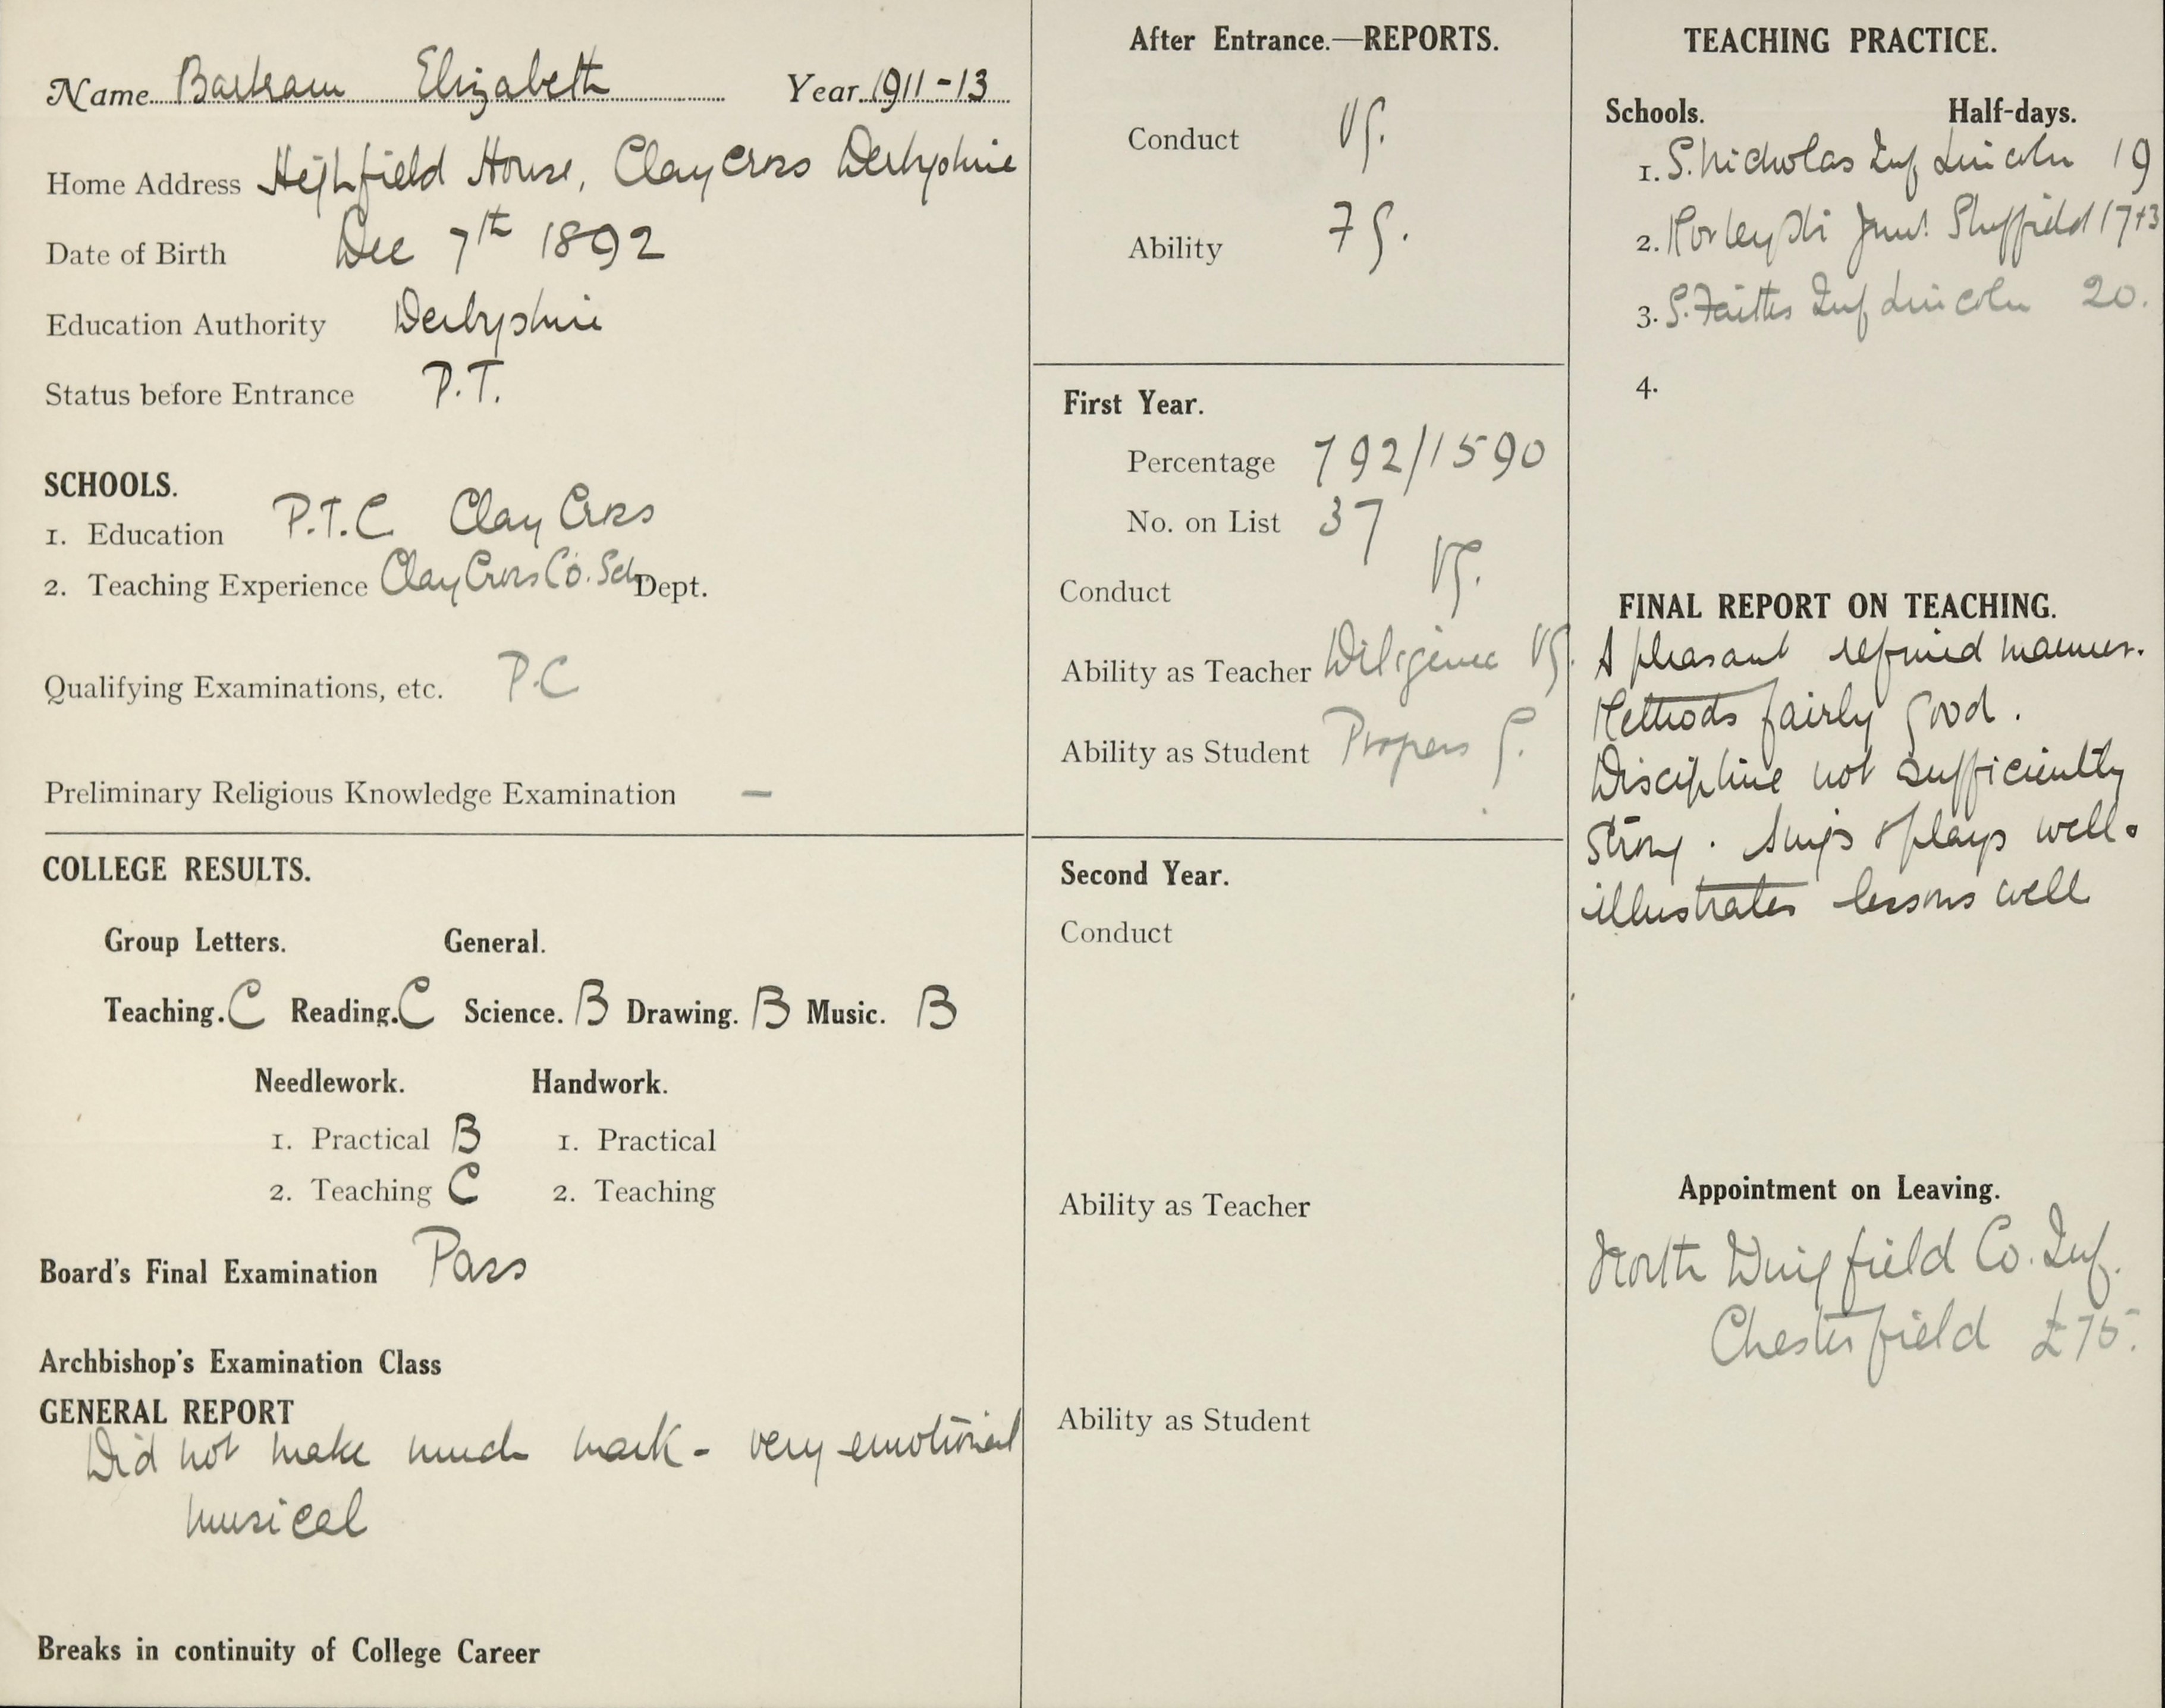 Name Bartram Elizabeth Year 1911-13
Home Address Highfield House, Clay Cross Derbyshire
Date of Birth Dec 7th 1892
Education Authority Derbyshire
Status before Entrance P.T.
SCHOOLS.
1. Education P.T.C Clay Cross
2. Teaching Experience Clay Cross Co. Sch Dept.
Qualifying Examinations, etc. P.C
Preliminary Religious Knowledge Examination –
COLLEGE RESULTS.
Group Letters. General.
Teaching. C Reading. C Science. B Drawing. B Music. B
Needlework. Handwork.
1. Practical B 1. Practical
2. Teaching C 2. Teaching
Board's Final Examination Pass
Archbishop's Examination Class
GENERAL REPORT
Did not make much mark - very emotional
musical
Breaks in continuity of College Career
After Entrance.—REPORTS.
Conduct VG.
Ability FG.
First Year.
Percentage 792/1590
No. on List 37
Conduct VG.
Ability as Teacher Diligence VG.
Ability as Student Progress G.
Second Year.
Conduct
Ability as Teacher
Ability as Student
TEACHING PRACTICE.
Schools. Half-days.
1. S. Nicholas Inf Lincoln 19
2. Sheffield 17+3
3. S. Faiths Inf Lincoln 20.
4.
FINAL REPORT ON TEACHING.
A pleasant refined manner.
Methods fairly good.
Discipline not sufficiently
strong. Sings & plays well.
illustrates lessons well
Appointment on Leaving.
North Wingfield Co. Inf.
Chesterfield £75.